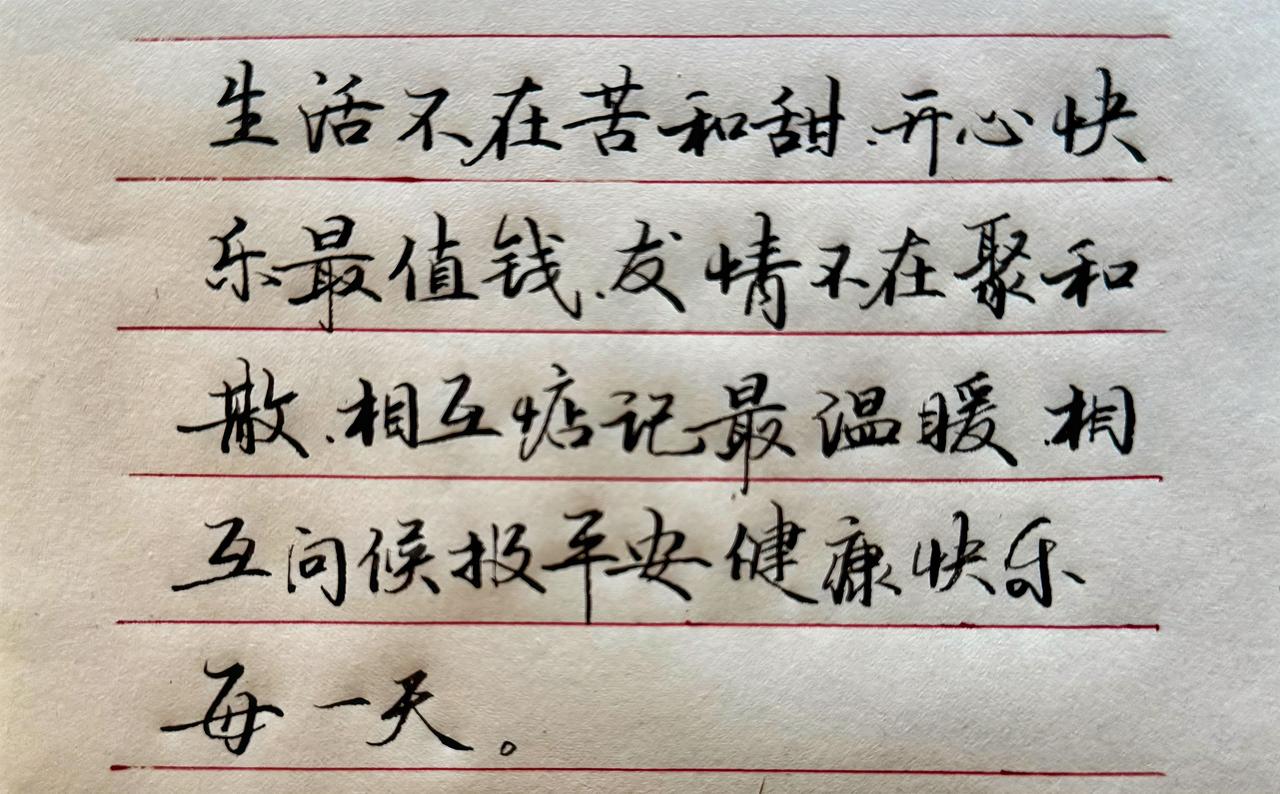 生活不在苦和甜、开心快
乐最值钱、友情不在聚和
散、相互惦记最温暖、相
互问候报平安健康快乐
每一天。